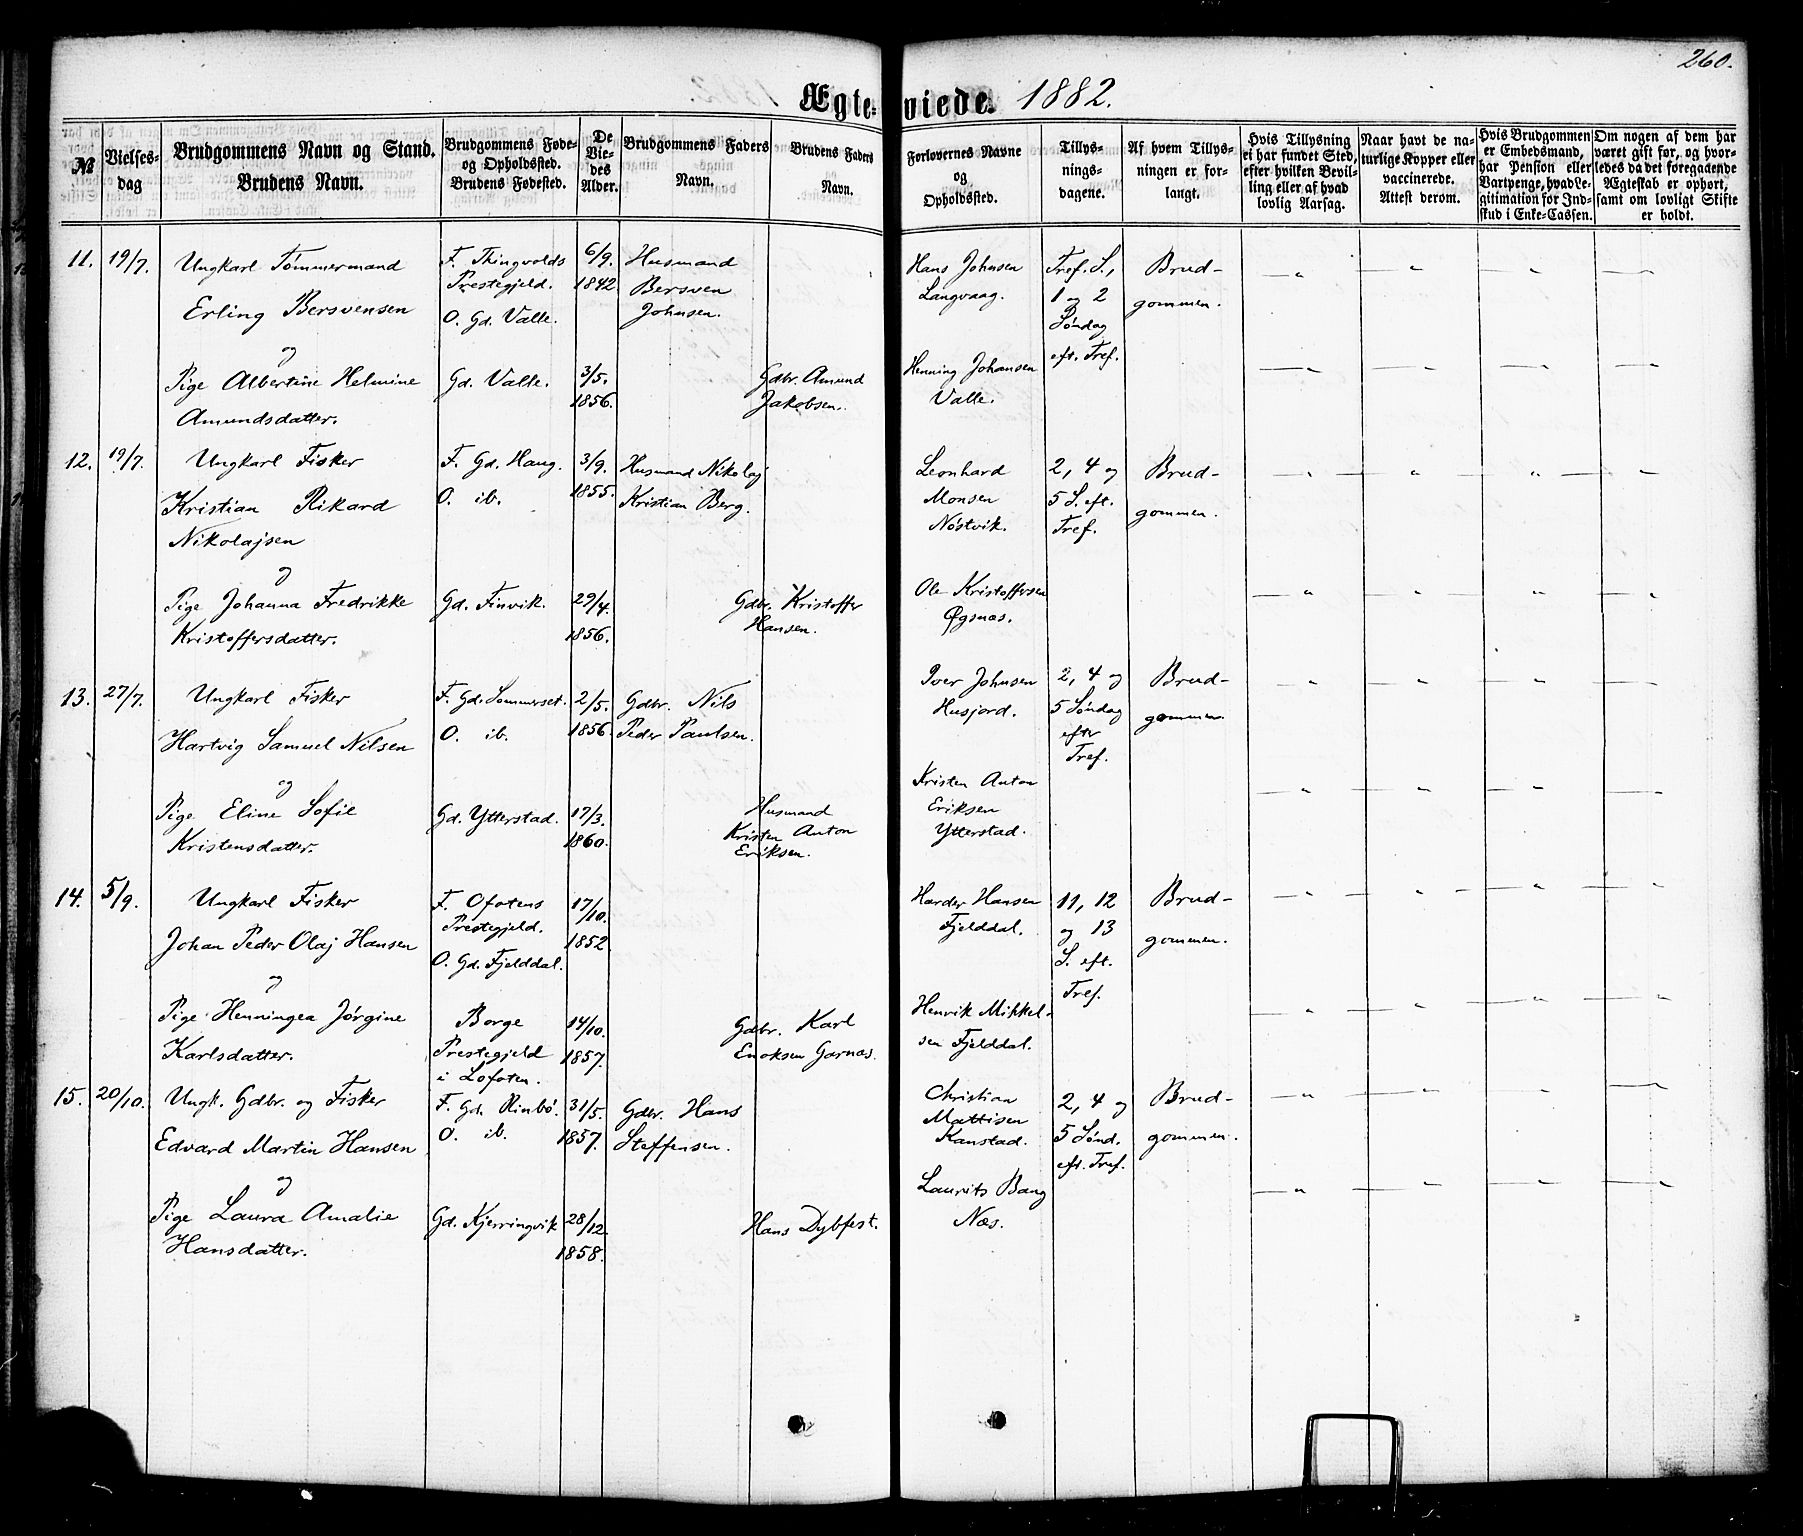 260.
Ægte-viede. 1882.
№
Vielses-dag
Brudgommens Navn og Stand.
Brudens Navn.
Brudgommens Føde- og Opholdssted.
Brudens Fødested.
De Vie-des Alder.
Brudgommens Faders Navn.
Brudens Faders Navn.
Forlovernes Navne og Opholdssted.
Tillys-nings-dagene.
Af hvem Tillys-ningen er for-langt.
Hvis Tillysning ei har fundet Sted, efter hvilken Bevil-ling eller af hvad lovlig Aarsag.
Naar havt de na-turlige Kopper eller vaccinerede. Attest derom.
Hvis Brudgommen er Embedsmand, har Pension eller Vartpenge, hvad Le-gitimation for Ind-skud i Enke-Cassen.
Om nogen af dem har været gift før, og hvor-ledes da det foregaaende Ægteskab er ophørt, samt om lovligt Skifte er holdt.
11. 19/7.
Ungkarl Tømmermand
Erling Bersvensen
og
Pige Albertine Helmine
Amundsdatter.
F. Thingvolds
Prestegjeld.
O. Gd. Valle.
Gd. Valle.
6/9.
1842.
3/5.
1856.
Husmand
Bersven
Johnsen.
Gdbr. Amund
Jakobsen.
Hans Johnsen
Langvaag.
Henning Johansen
Valle.
Tref. S.,
1 og 2
Søndag
eft. Tref.
Brud-
gommen.
12. 19/7.
Ungkarl Fisker
Kristian Rikard
Nikolajsen
og
Pige Johanna Fredrikke
Kristoffersdatter.
F. Gd. Haug.
O. ib.
Gd. Finvik.
3/9.
1855.
29/4.
1856.
Husmand Nikolaj
Kristian Berg.
Gdbr. Kristoffer
Hansen.
Leonhard
Monsen
Nøstvik.
Ole Kristoffersen
Øgsnæs.
2, 4 og
5 S. eft.
Tref.
Brud-
gommen.
13. 27/7.
Ungkarl Fisker
Hartvig Samuel Nilsen
og
Pige Eline Sofie
Kristensdatter.
F. Gd. Sommerset.
O. ib.
Gd. Ytterstad.
2/5.
1856.
17/3.
1860.
Gdbr. Nils
Peder Paulsen.
Husmand
Kristen Anton
Eriksen.
Iver Johnsen
Husjord.
Kristen Anton
Eriksen
Ytterstad.
2, 4 og
5 Søndag
efter
Tref.
Brud-
gommen.
14. 5/9.
Ungkarl Fisker
Johan Peder Olaj Hansen
og
Pige Henningea Jørgine
Karlsdatter.
F. Ofotens
Prestegjeld.
O. Gd. Fjelddal.
Borge
Prestegjeld
i Lofoten.
17/10.
1852.
14/10.
1857.
Gdbr. Karl
Enoksen Garnæs.
Harder Hansen
Fjelddal.
Henrik Mikkel-
sen Fjelddal.
11, 12
og 13
S. eft.
Tref.
Brud-
gommen.
15. 20/10.
Ungk. Gdbr. og Fisker
Edvard Martin Hansen
og
Pige Laura Amalie
Hansdatter.
F. Gd. Rinbø.
O. ib.
Gd. Kjerringvik
31/5.
1857.
28/12.
1858.
Gdbr. Hans
Steffensen.
Hans Dybfest.
Christian
Mattisen
Kanstad.
Laurits Bang
Næs.
2, 4 og
5 Sønd.
eft. Tref.
Brud-
gommen.